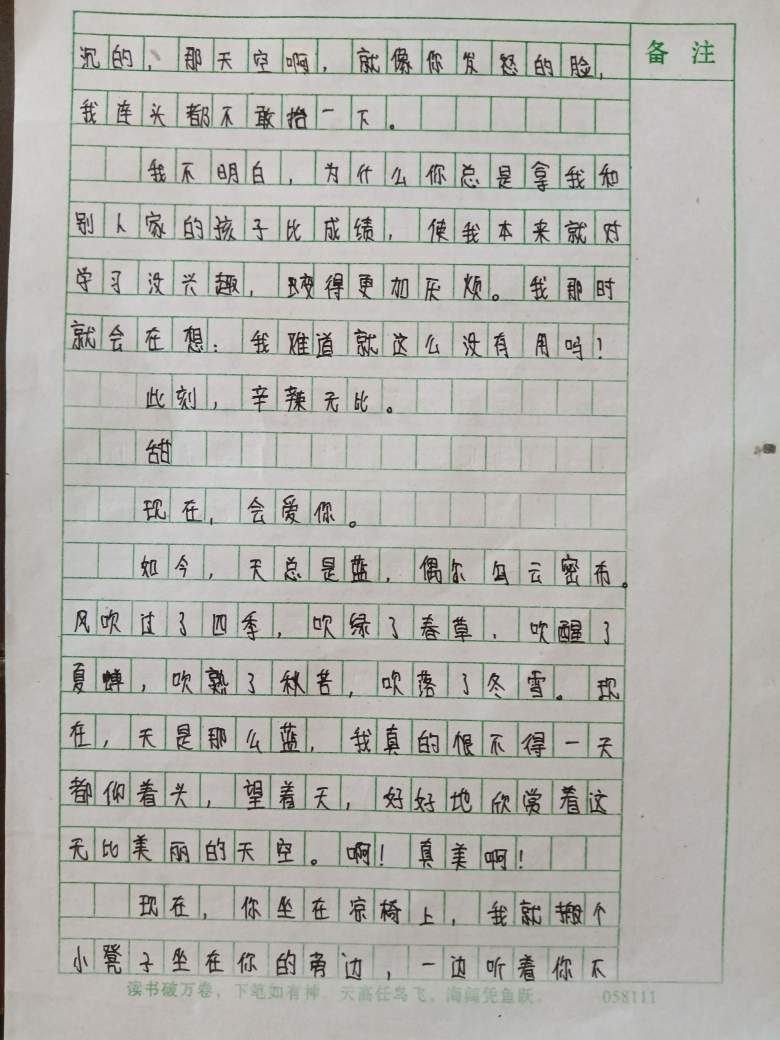 备 注
沉的，那天空啊，就像你发怒的脸，
我连头都不敢抬一下。
我不明白，为什么你总是拿我和
别人家的孩子比成绩，使我本来就对
学习没兴趣，变得更加厌烦。我那时
就会在想：我难道就这么没有用吗！
此刻，辛辣无比。
甜
现在，会爱你。
如今，天总是蓝，偶尔乌云密布。
风吹过了四季，吹绿了春草，吹醒了
夏蝉，吹熟了秋苦，吹落了冬雪。现
在，天是那么蓝，我真的恨不得一天
都仰着头，望着天，好好地欣赏着这
无比美丽的天空。啊！真美啊！
现在，你坐在凉椅上，我就搬个
小凳子坐在你的旁边，一边听着你不
读书破万卷，下笔如有神。天高任鸟飞，海阔凭鱼跃。 058111